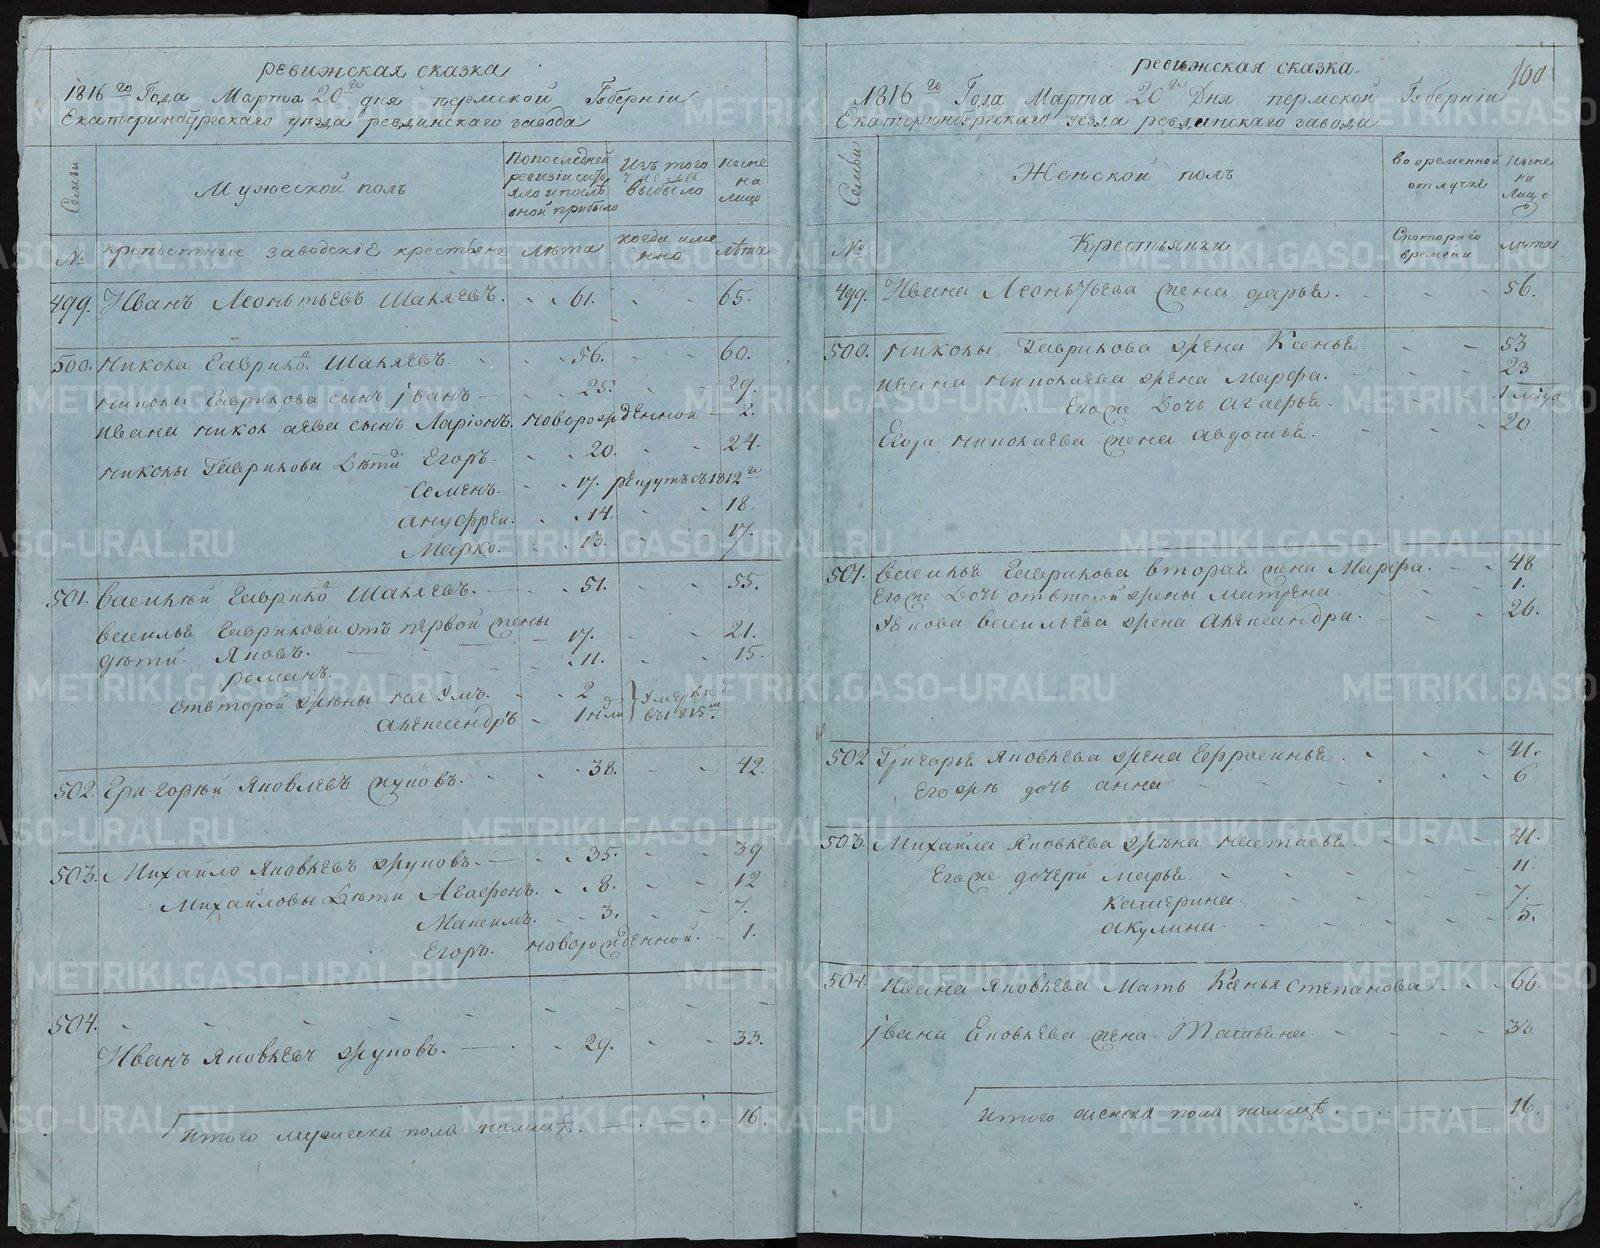 ревижская сказка
1816го Года Марта 20го дня пермской Губернiи
Екатеринбургскаго уѣзда ревдинскаго завода
Семьи
Мужеской полъ
По последней ревизiи состояло и после оной прибыло
Изъ того числа выбыло
Ныне на лицо
№
крепостные заводскiе крестьяне
лѣта
когда имянно
лѣта
499. Иванъ Леонтьевъ Шаляевъ. 61. 65.
500. Никола Гаврило Шаляевъ. 56. 60.
Николы Гаврилова сынъ iванъ 25. 29.
Ивана Николаева сынъ Ларiонъ. новорожденной 2.
Николы Гаврилова дѣти Егоръ. 20. 24.
Семенъ. 17. рекрутъ съ 1812го
Ануфреи. 14. 18.
Марко. 13. 17.
501. Василѣй Гаврило Шаляевъ. 51. 55.
Василья Гаврилова отъ первой жены
дѣти. Яковъ. 17. 21.
романъ. 11. 15.
отъ второй жены Наумъ. 2
Александръ 1 ндли
Умерли въ 1815м
502. Григорѣй Яковлевъ жуковъ. 38. 42.
503. Михайло Яковлевъ жуковъ. 35. 39
Михайловы Дѣти Агафонъ. 8. 12
Максимъ. 3. 7.
Егоръ. новорожденной. 1.
504.
Иванъ Яковлевъ жуковъ. 29. 33.
Итого мужеска пола налицѣ. 16.
ревижская сказка
100
1816го Года Марта 20го Дня пермской Губернiи
Екатеринбургскаго уезда ревдинскаго завода
Семьи
Женской полъ
во временной отлучке
Ныне на Лицо
№
Крестьянки
Скотораго времени
лѣта
499. Ивана Леонтьева жена дарья. 56.
500. Николы Гаврилова жена Ксенья. 53
Ивана Николаева жена марфа. 23
Егоже Дочь агафья. 1 мца
Егора Николаева жена авдотья. 20
501. Василья Гаврилова вторая жена Марфа. 48
Егоже Дочь от второй жены матрена 1.
Якова Васильева жена Александра. 26.
502 Григорья Яковлева жена Ефросинья. 41.
Егоже дочь анна 6
503. Михаила Яковлева жена наталья. 41.
Егоже дочери марья. 11.
Катерина 7.
акулина. 5.
504. Ивана Яковлева Мать Ксенья степанова 66.
iвана Яковлева жена Татьяна. 33
Итого женска пола налицѣ. 16.
METRIKI.GASO-URAL.RU